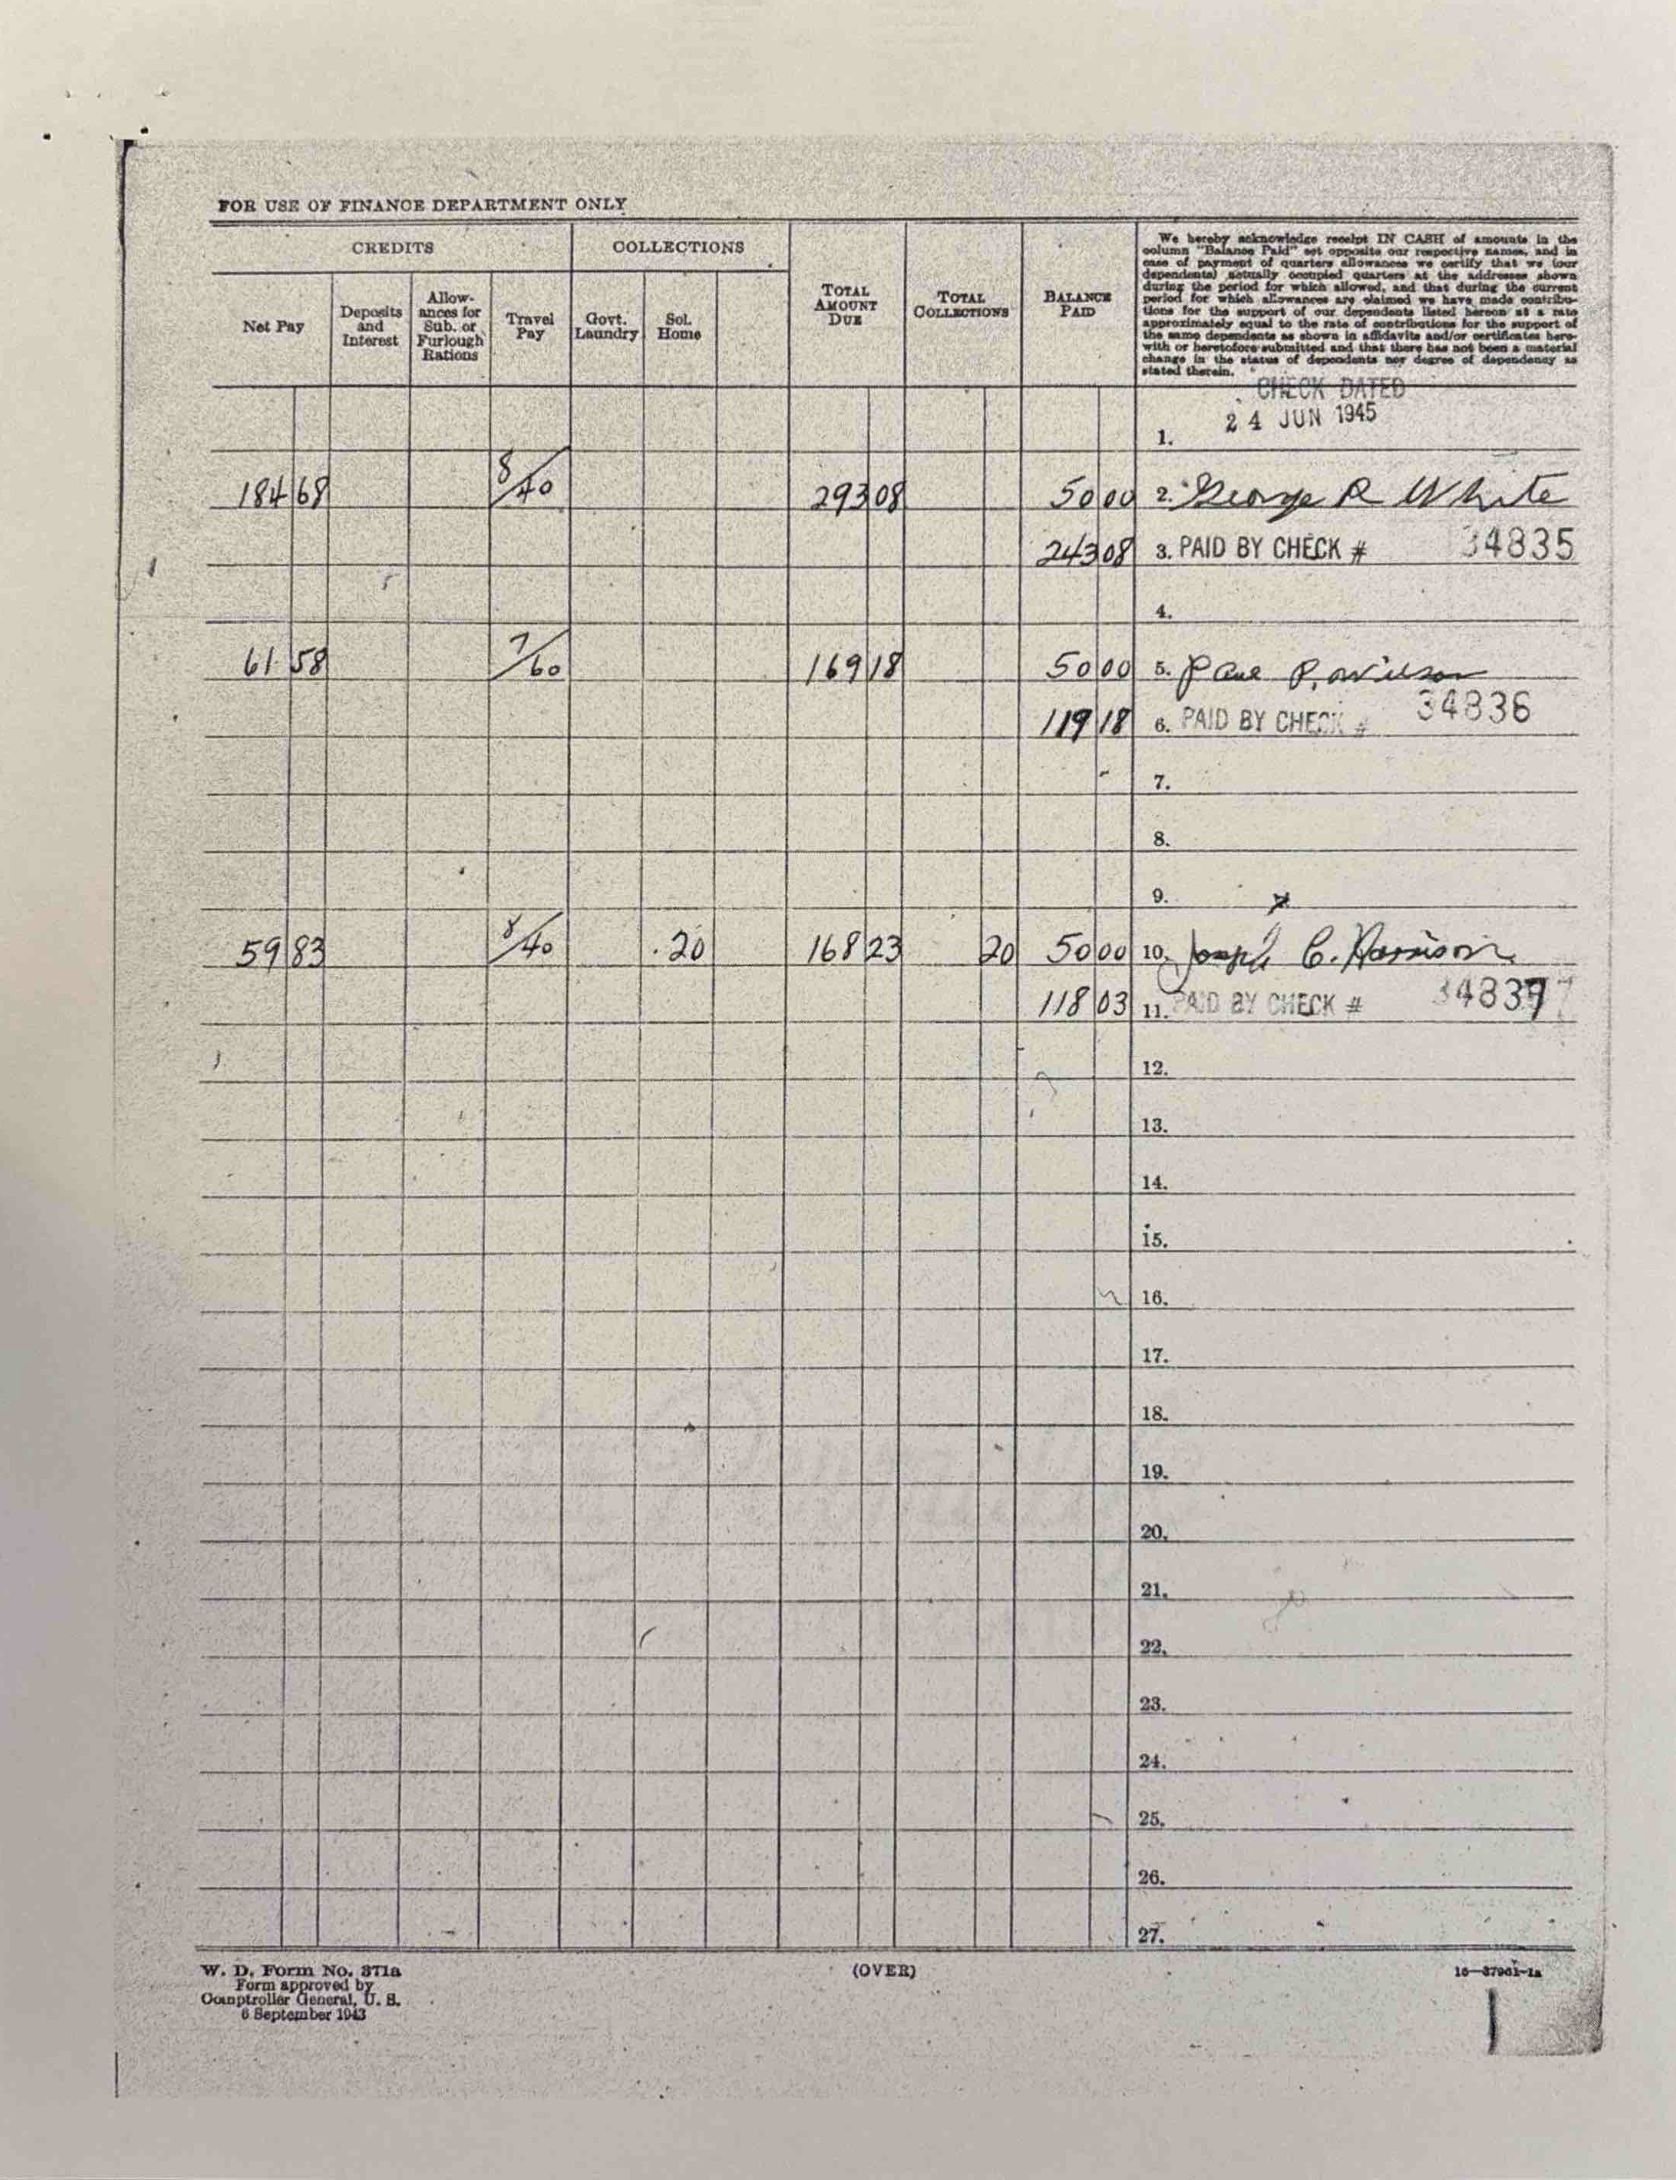 FOR USE OF FINANCE DEPARTMENT ONLY
CREDITS
COLLECTIONS
Net Pay
Deposits and Interest
Allow-
ances for
Sub. or
Furlough
Rations
Travel Pay
Govt. Laundry
Sol. Home
TOTAL AMOUNT DUE
TOTAL COLLECTIONS
BALANCE PAID
We hereby acknowledge receipt IN CASH of amounts in the
column "Balance Paid" set opposite our respective names, and in
case of payment of quarters allowances we certify that we (our
dependents) actually occupied quarters at the addresses shown
during the period for which allowed, and that during the current
period for which allowances are claimed we have made contribu-
tions for the support of our dependents listed hereon at a rate
approximately equal to the rate of contributions for the support of
the same dependents as shown in affidavits and/or certificates here-
with or heretofore submitted and that there has not been a material
change in the status of dependents nor degree of dependency as
stated therein.
CHECK DATED
1. 24 JUN 1945
184 68 8/40 293 08 50 00 2. George R White
243 08 3. PAID BY CHECK # 34835
4.
61 58 7/60 169 18 50 00 5. P. Wilson
119 18 6. PAID BY CHECK # 34836
7.
8.
9.
59 83 8/40 .20 168 23 20 50 00 10. Joseph C. Harrison
118 03 11. PAID BY CHECK # 34837
12.
13.
14.
15.
16.
17.
18.
19.
20.
21.
22.
23.
24.
25.
26.
27.
W. D. Form No. 371a
Form approved by
Comptroller General, U. S.
6 September 1943
(OVER)
16—37961-1a